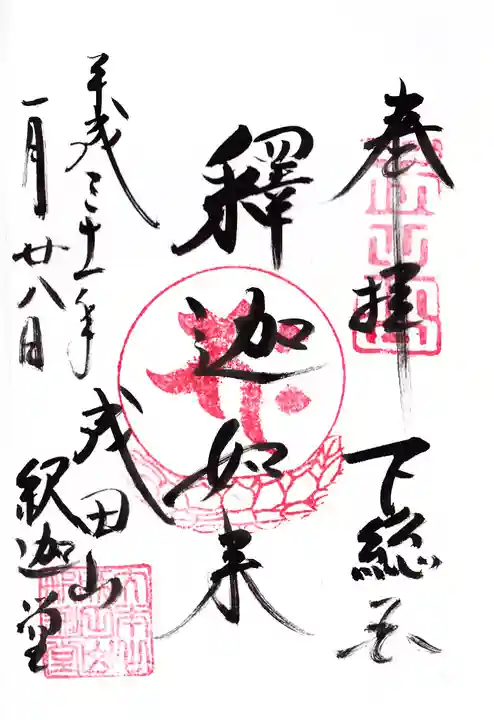 奉拝
下総國
釋迦如来
平成三十一年
一月廿八日
成田山
釈迦堂